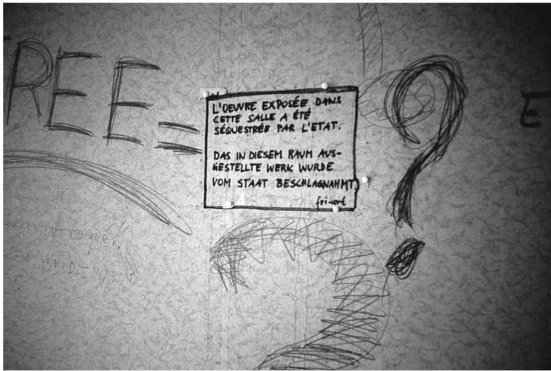 REE=
L'OEUVRE EXPOSÉE DANS
CETTE SALLE A ÉTÉ
SÉQUESTRÉE PAR L'ETAT.
DAS IN DIESEM RAUM AUS-
GESTELLTE WERK WURDE
VOM STAAT BESCHLAGNAHMT
fri-art
?
E